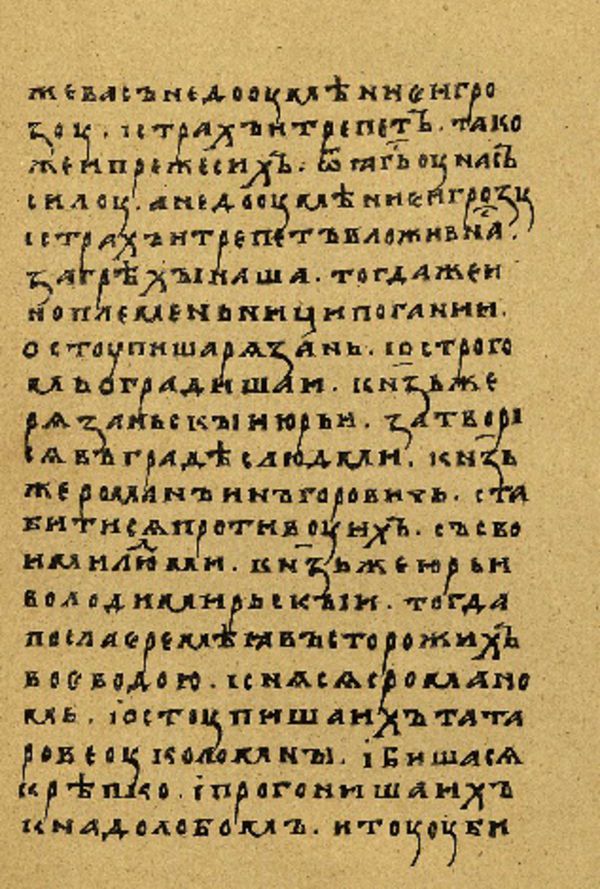 же васъ недооумѣние и гро
зоу. и страхъ и трепетъ. тако
же и преже сихъ. ѿꙗтъ г҃ь оу насъ
силоу. а недооумѣние и грозу
и страхъ и трепетъ вложи в на҃.
за грѣхы наша. тогда же и
ноплеменьници погании.
остоупиша рѧзань. и острого
мь оградиша и. кнѧ҃зь же
рѧзаньскыи юрьи. затвори
сѧ въ градѣ с людми. кн҃зь
же романъ инъгоровичь. ста
битисѧ противоу ихъ. съ сво
ими людми. кн҃зь же юрьи
володимирьскыи. тогда
посла еремѣꙗ въ сторожихъ
воеводою. и снѧсѧ с романо
мь. і остоупиша ихъ тата
рове оу коломны. і бишасѧ
крѣпко. і прогониша ихъ
к надолобомъ. и тоу оуби